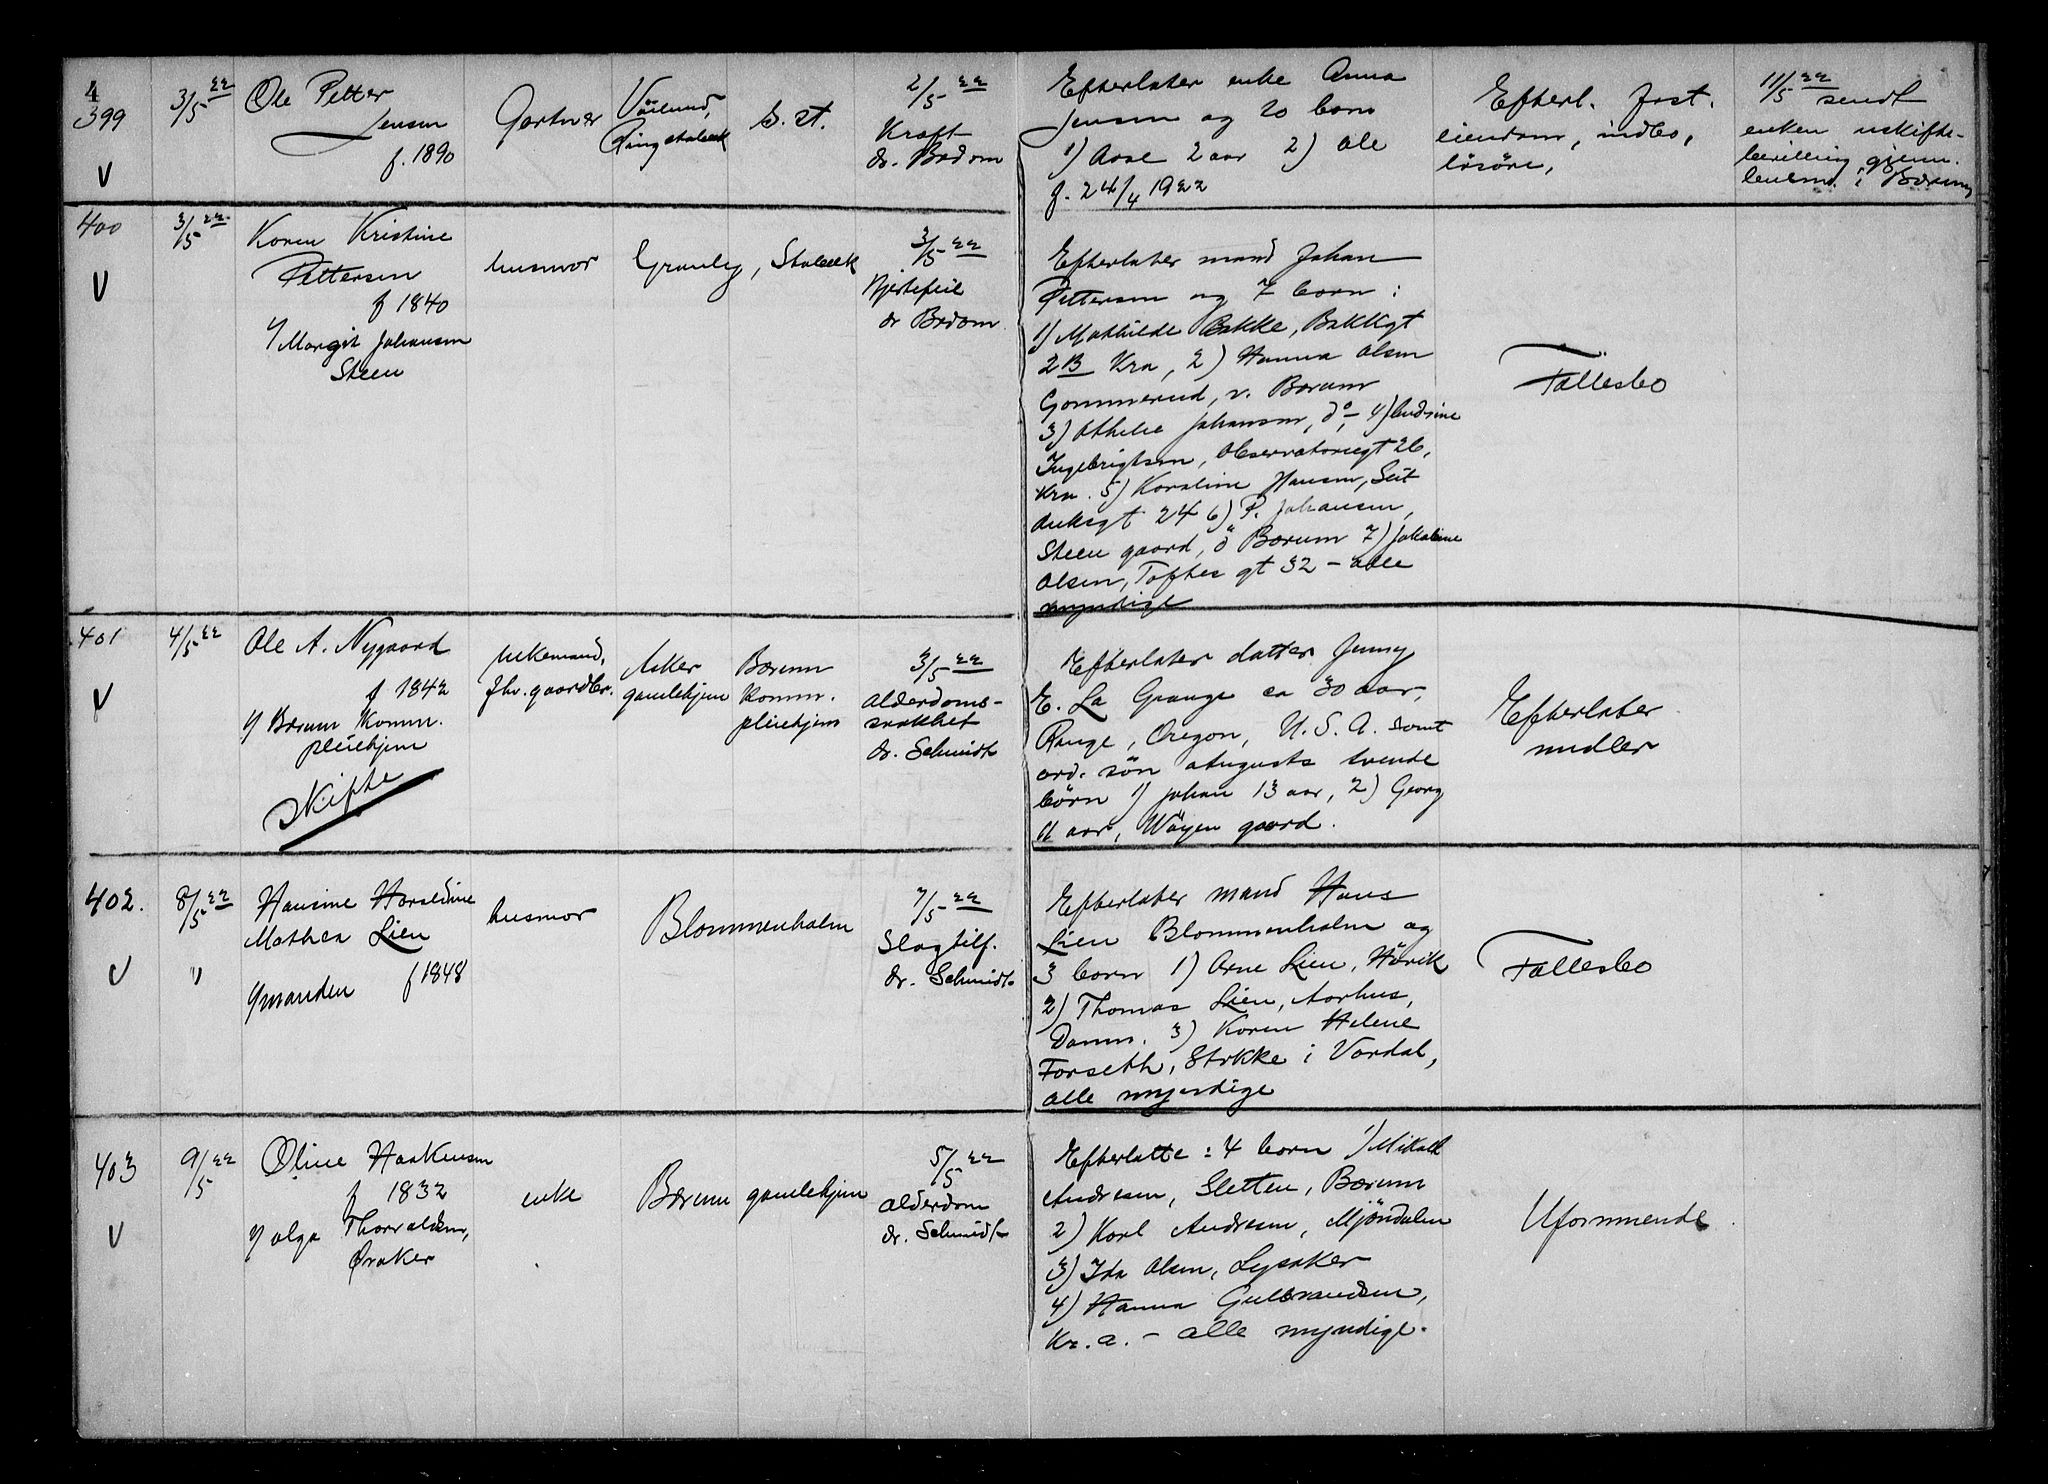 4
399
V
3/5 22
Ole Petter
Jensen
f. 1890
Gartner
s. st.
2/5 22
Kræft
dr. Bødom
Efterlater enke Anna
Jensen og 2 barn
1) Aase 2 aar 2) Ole
f. 24/4 1922
Efterl. fast.
eiendom, indbo,
løsøre,
11/5 22 sendt
enken uskifte-
bevilling gjenn.
lensm. i Bærum
400
V
3/5 22
Karen Kristine
Pettersen
f 1840
v/ Margit Johansen
Steen
husmor
Granly, Stabæk
3/5 22
Hjertefeil
dr Bødom
Efterlater mand Johan
Pettersen og 7 barn :
1) Mathilde Bakke, Bakkegt
2B Kra, 2) Hanna Olsen
Gommerud, v. Bærum
3) Othelie Johansen, do, 4)
Ingebrigtsen, Observatoriegt 26,
Kra. 5) Karoline Hansen,
24 6) P. Johansen,
Steen gaard, ø Bærum 7)
Olsen, Toftes gt 32 – alle
myndige
Fællesbo
401
V
4/5 22
Ole A. Nygaard
f 1842
v/ Bærum Komm.
pleiehjem
Skifte
enkemand,
fhv. gaardbr.
Asker
gamlehjem
Bærum
Komm.
pleiehjem
3/5 22
Alderdoms-
svakhet
dr. Schmidt
Efterlater datter Jenny
E. La Grange ca 30 aar,
Range, Oregon, U. S. A. samt
avd. søn Augusts tvende
børn 1) Johan 13 aar, 2) Georg
11 aar, Wøyen gaard.
Efterlater
midler
402.
V
8/5 22
"
Hansine Haraldine
Mathea Lien
v/ manden f 1848
husmor
Blommenholm
7/5 22
Slagtilf.
dr. Schmidt
Efterlater mand Hans
Lien Blommenholm og
3 barn 1) Arne Lien, Høvik
2) Thomas Lien, Aarhus,
Danm. 3) Karen Helene
Forseth, Stokke i Vardal,
alle myndige
Fællesbo
403
V
9/5 22
Oline Haakensen
f 1832
v/ Olga Thorvaldsen,
Øraker
enke
Bærum gamlehjem
5/5 22
Alderdom
dr. Schmidt
Efterlatte : 4 barn 1) Mikael
Andresen, Sletten, Bærum
2) Karl Andresen, Mjøndalen
3) Ida Olsen, Lysaker
4) Hanna Gulbrandsen,
Kr. a. – alle myndige.
Uformuende